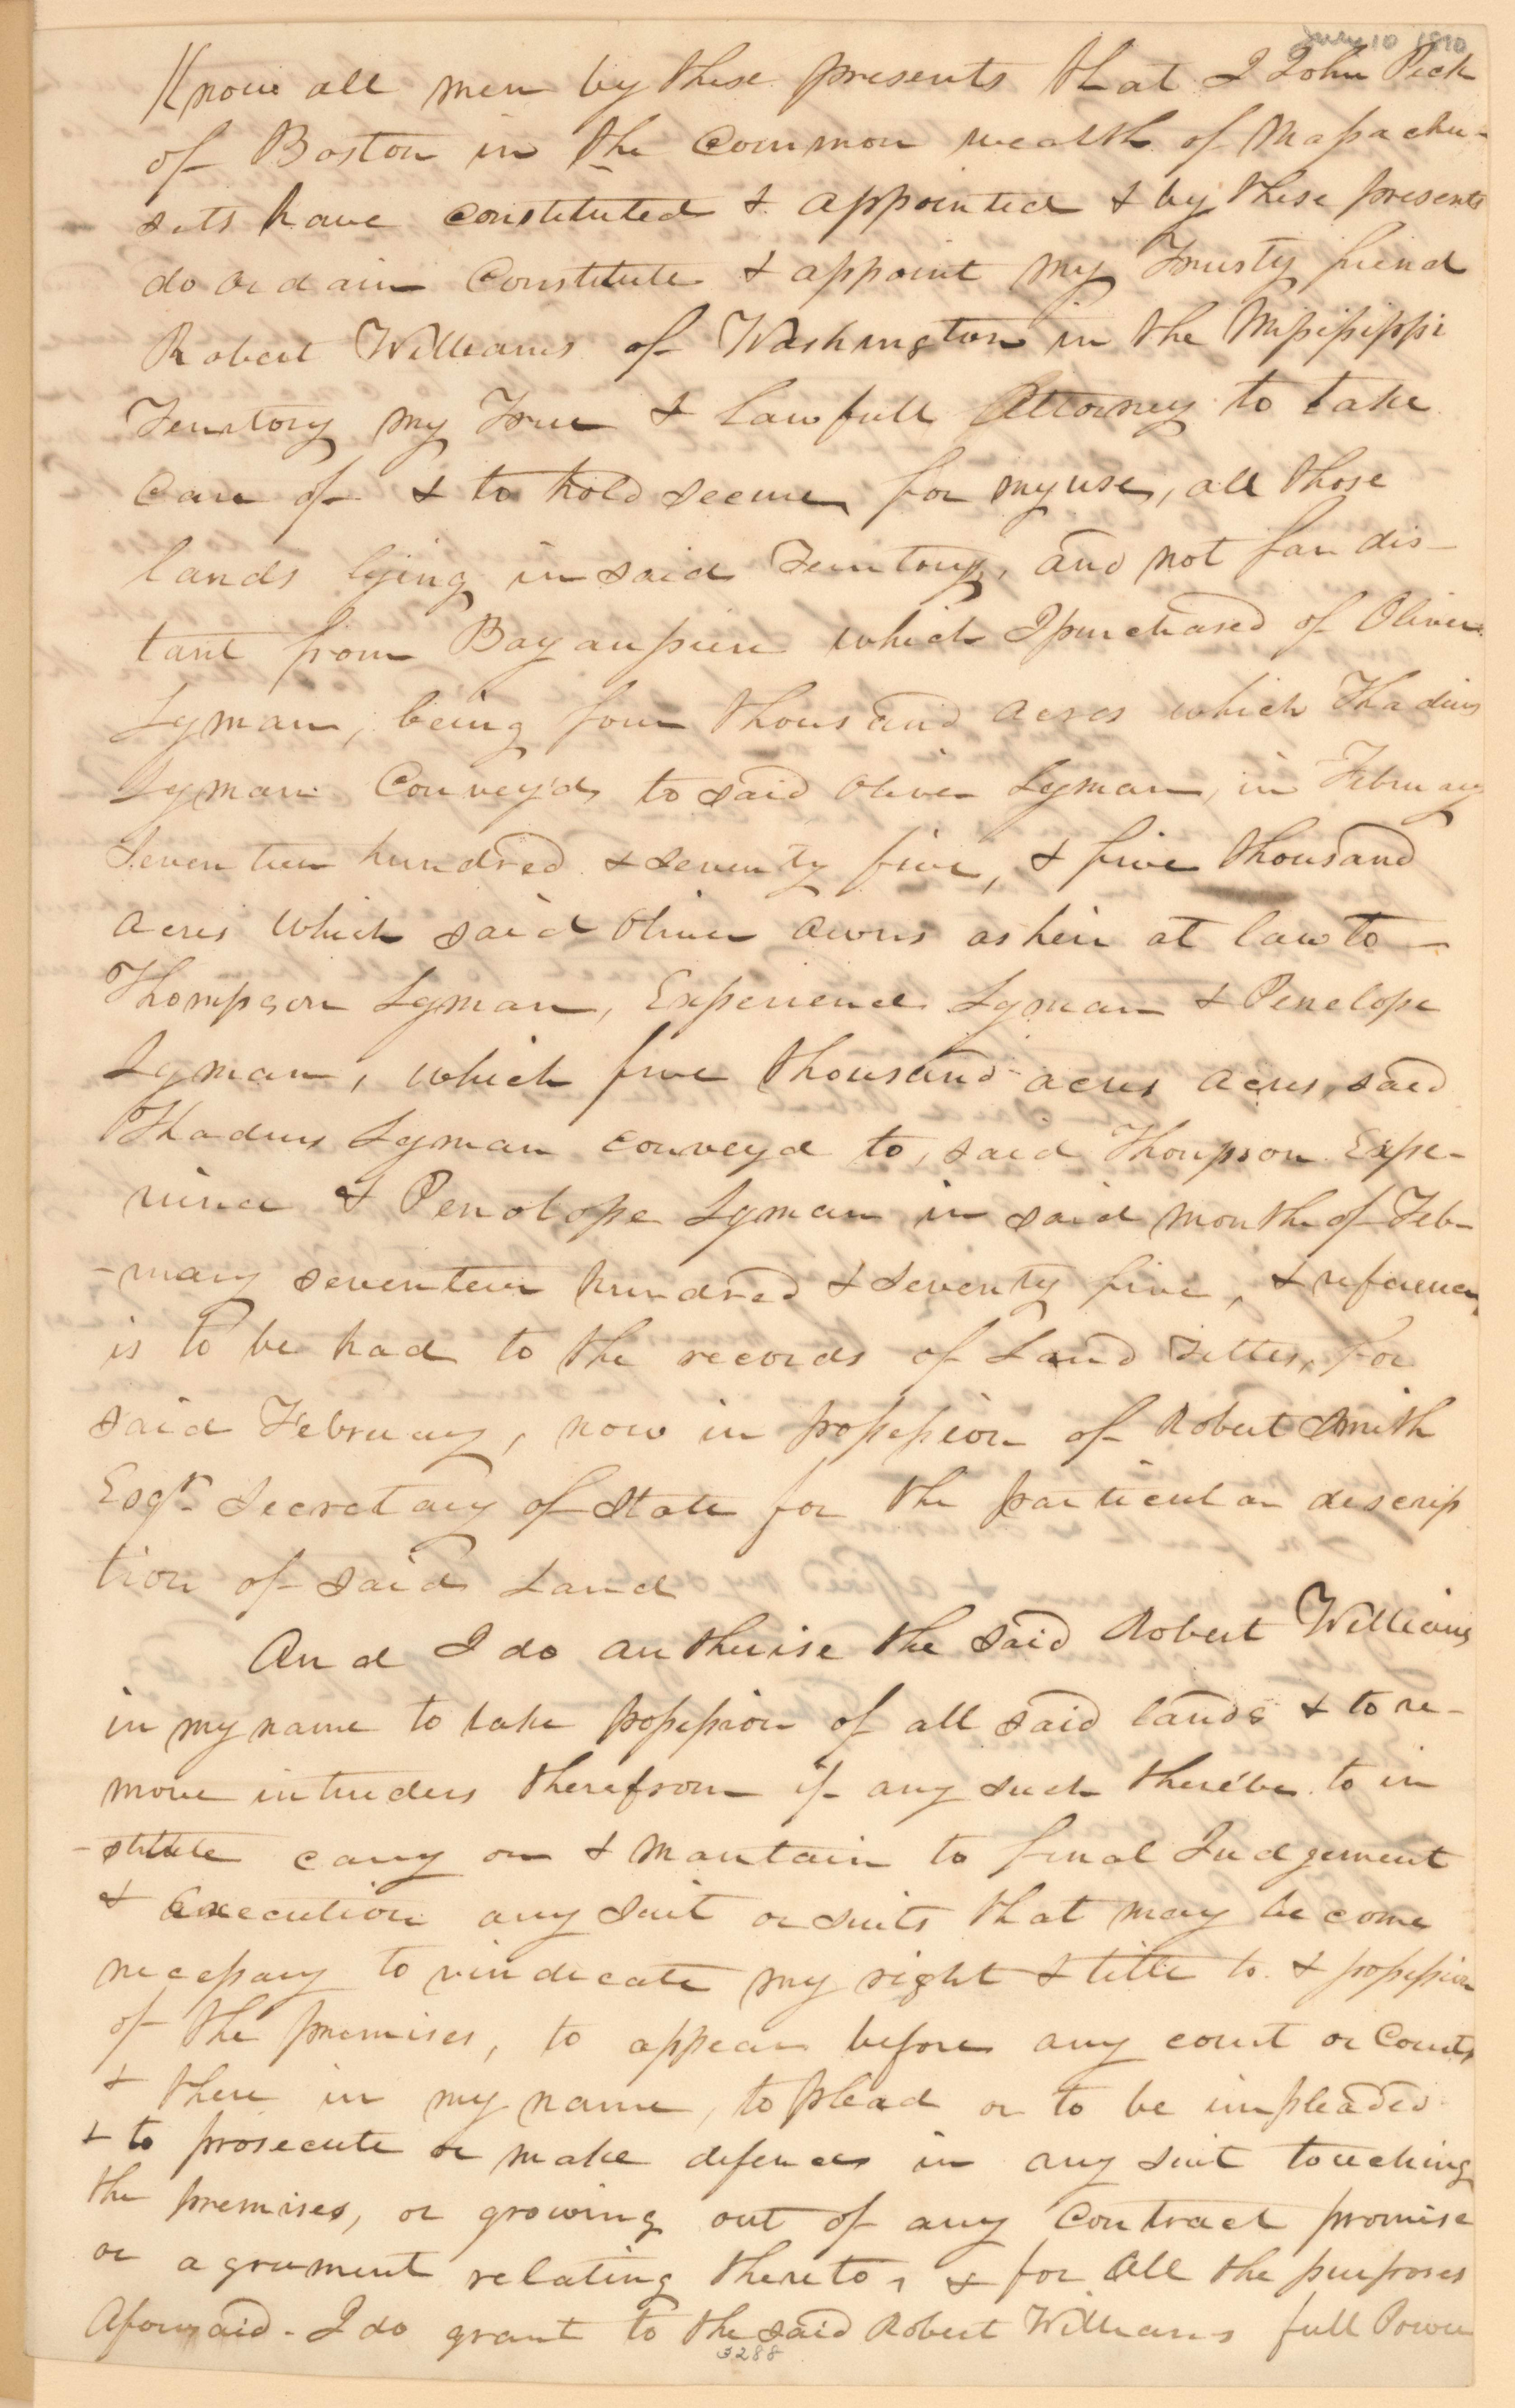 July 10 1810
Know all men by these presents that I John Peck
of Boston in the Common wealth of Massachu-
setts have constituted & appointed & by these presents
do ordain Constitute & appoint my Trusty friend
Robert Williams of Washington in the Missisippi
Territory my True & Lawfull Attorney to take
Care of & to hold secure for my use, all those
lands lying in said Territory, and not far dis-
tant from Bayaupiere which I purchased of Oliver
Lyman, being four thousand acres which Thadius
Lyman Convey'd to said Oliver Lyman, in February
Seventeen hundred & seventy five, & five thousand
acres which said Oliver owns as heir at law to
Thompson Lyman, Experience Lyman & Penelope
Lyman, which five thousand acres acres, said
Thadius Lyman convey'd to, said Thompson Expe-
rience & Penelope Lyman in said month of Feb-
-ruary seventeen hundred & seventy five, & reference
is to be had to the records of Land Titles, for
said February, now in possession of Robert Smith
Esqr. Secretary of State for the particular descrip
tion of said Land
And I do autherise the said Robert Williams
in my name to take possession of all said lands & to re-
move intruders therefrom if any such there be to in
-stitute carry on & mantain to final Judgement
& Execution any suit or suits that may become
necessary to vindicate my right & title to & possession
of the premises, to appear before any court or Courts
& there in my name, to plead or to be impleaded
& to prosecute or make defence in any suit touching
the premises, or growing out of any Contract promise
or agreement relating thereto, & for All the purposes
Aforesaid - I do grant to the said Robert Williams full Power
3288